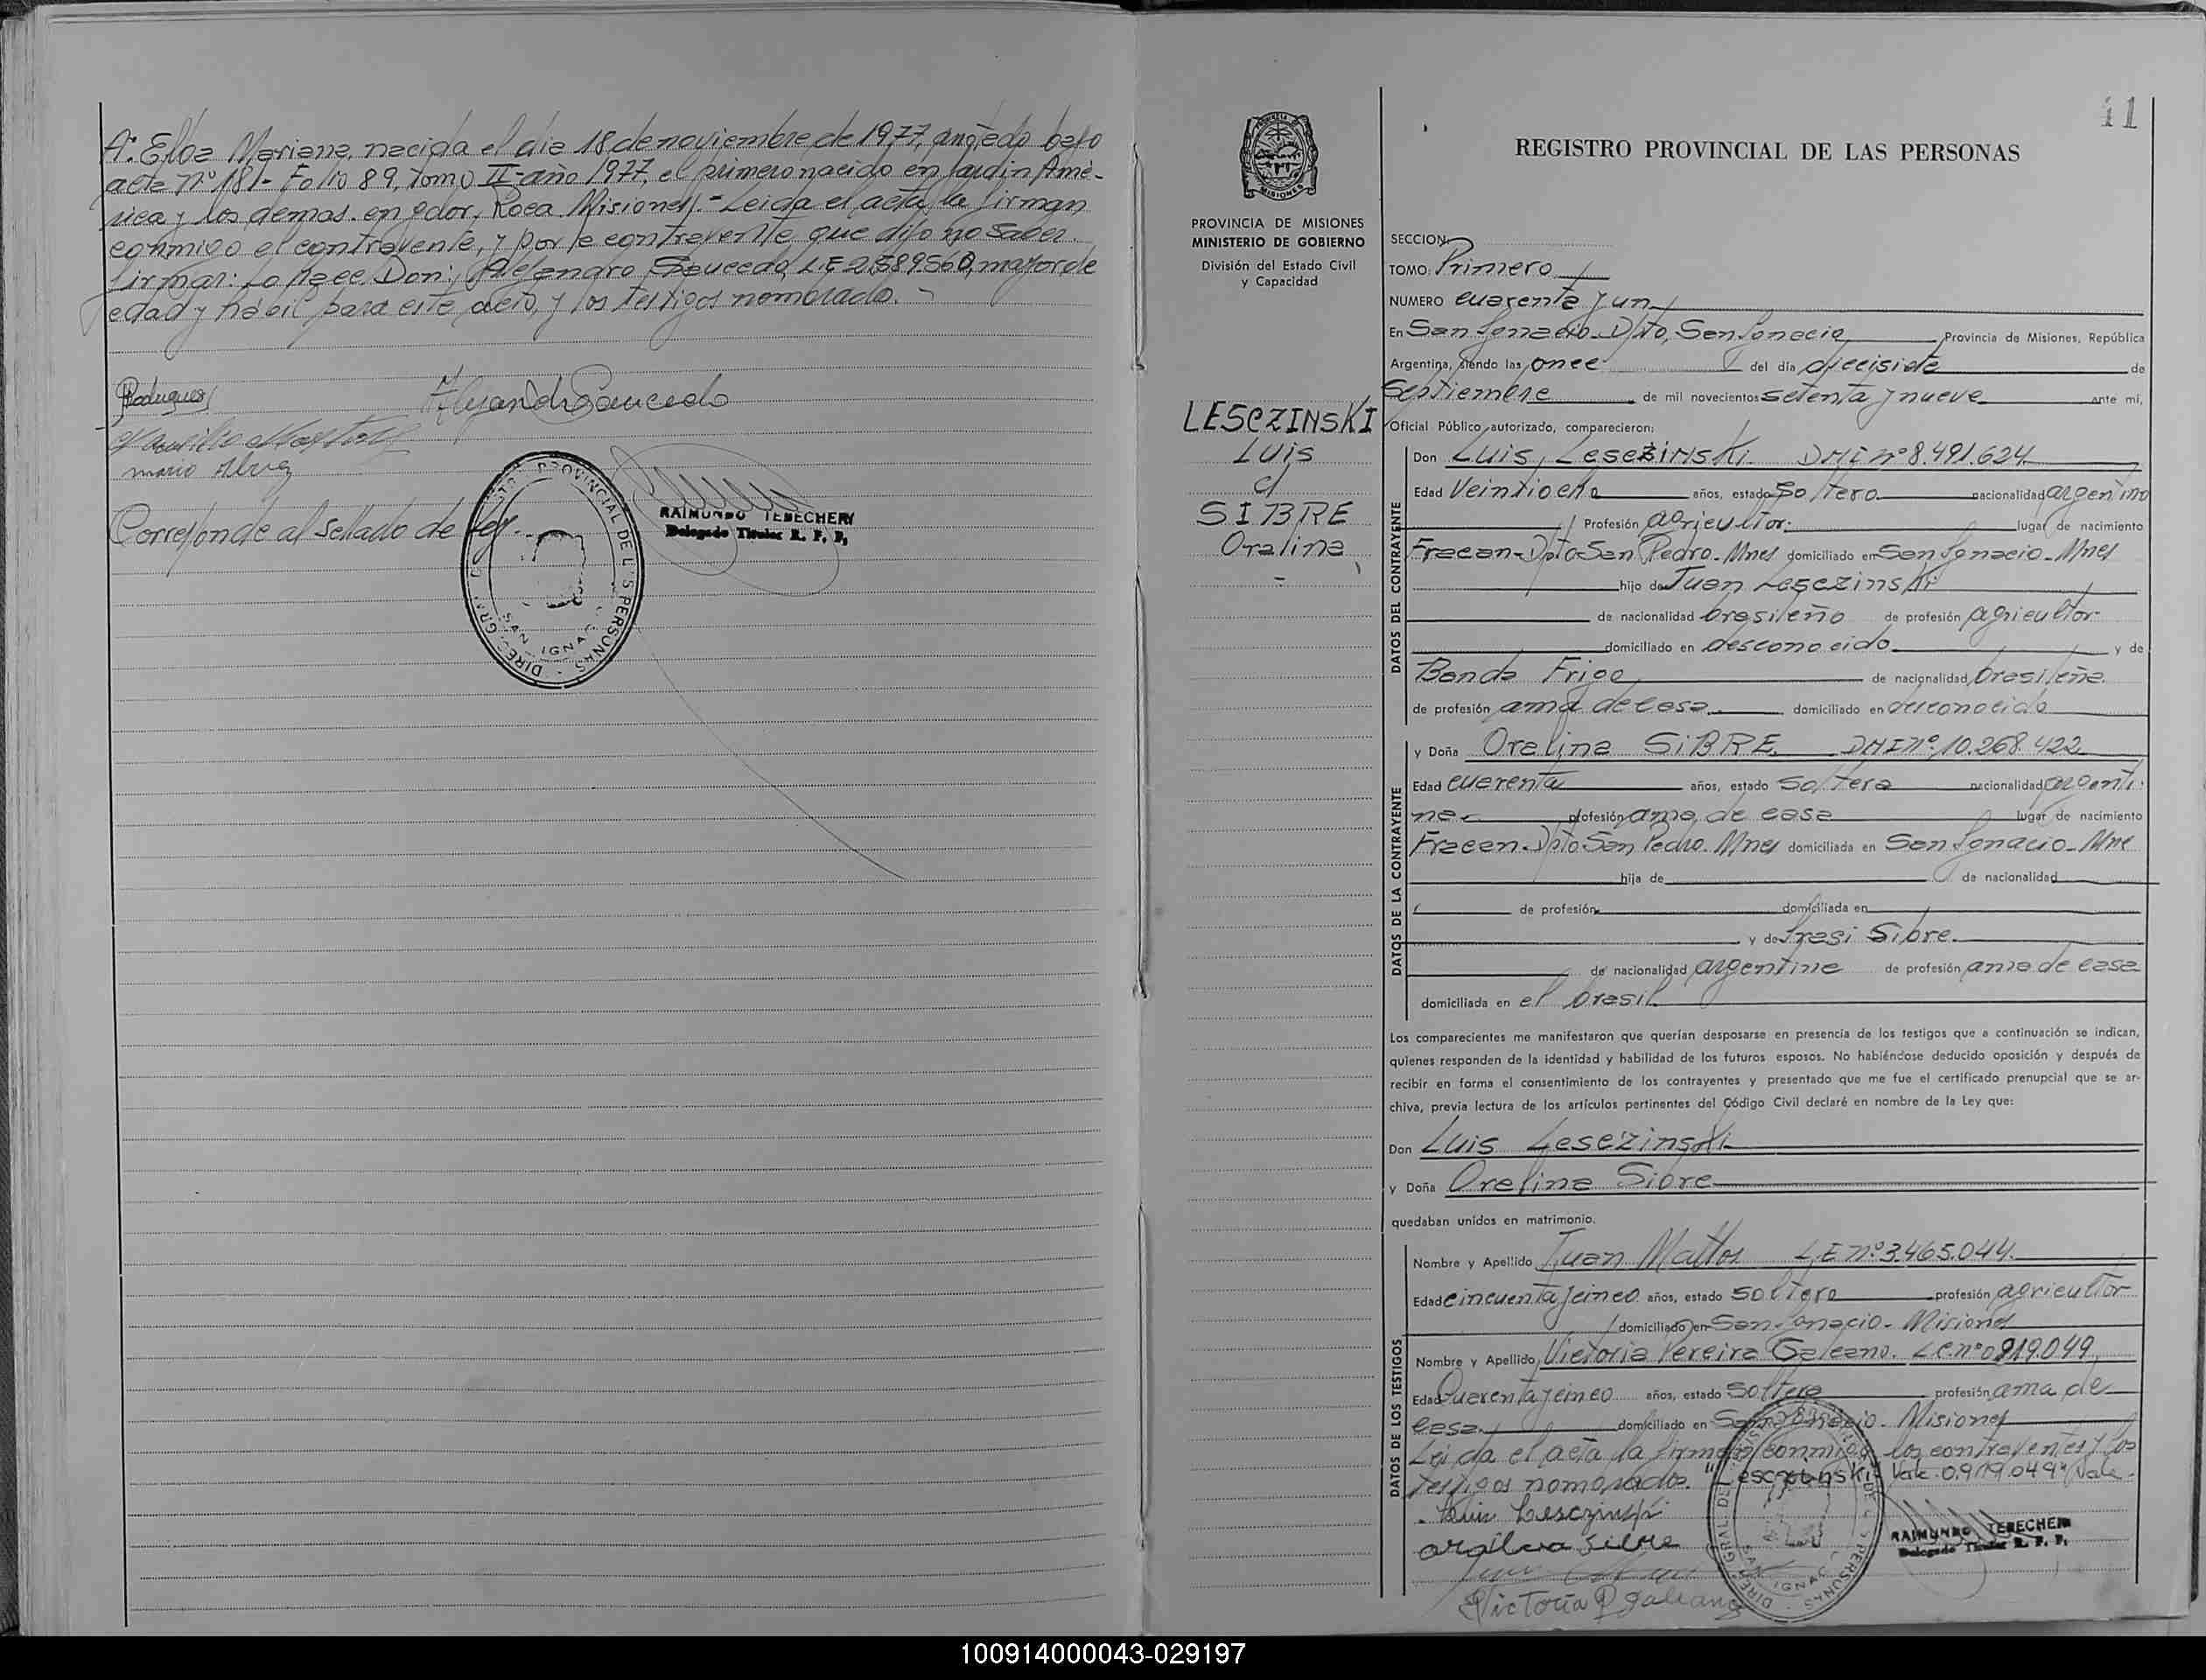 Aº Elba Mariana, nacida el dia 18 de noviembre de 1977, anotado bajo
acta nº 181- Folio 89, Tomo II- año 1977, el primero nacido en Jardin Amé-
rica y los demas en gdor, Roca Misiones.- Leida el acta la firman
conmigo el contrayente, y por la contrayente que dijo no saber
firmar: Lo hace Don: Alejandro Saucedo, L.E 2.589.560, mayor de
edad y hábil para este acto, y los testigos nombrado.-
Rodriguez
Alejandro Saucedo
mario
Corresponde al sellado de Ley.
RAIMUNDO TERECHEN
Delegado Titular R. P. P.
PROVINCIAL DE L S PERSONAS
SAN IGNACIO
41
REGISTRO PROVINCIAL DE LAS PERSONAS
PROVINCIA DE MISIONES
MINISTERIO DE GOBIERNO
División del Estado Civil
y Capacidad
LESCZINSKI
Luis
c/
SIBRE
Oralina
SECCION
TOMO: Primero
NUMERO cuarenta y un
En San Ignacio Dpto, San Ignacio Provincia de Misiones, República
Argentina, siendo las once del día diecisiete de
Septiembre de mil novecientos setenta y nueve ante mí,
Oficial Público autorizado, comparecieron:
DATOS DEL CONTRAYENTE
Don Luis, Lesczinski DNI nº 8.491.624
Edad Veintiocho años, estado Soltero nacionalidad argentino
Profesión agricultor. lugar de nacimiento
Fracan-Dpto San Pedro. Mnes domiciliado en San Ignacio-Mnes
hijo de Juan Lesczinski
de nacionalidad brasileño de profesión agricultor
domiciliado en desconocido y de
Banda Frigo de nacionalidad brasileña.
de profesión ama de casa. domiciliado en desconocido
DATOS DE LA CONTRAYENTE
y Doña Oralina SiBRE. DNI nº 10.268.422
Edad cuarenta años, estado Soltera nacionalidad argenti-
na profesión ama de casa lugar de nacimiento
Fracan-Dpto San Pedro. Mnes domiciliada en San Ignacio-Mne
hija de de nacionalidad
de profesión domiciliada en
y de Irasi Sibre.
de nacionalidad argentina de profesión ama de casa
domiciliada en el brasil.
Los comparecientes me manifestaron que querían desposarse en presencia de los testigos que a continuación se indican,
quienes responden de la identidad y habilidad de los futuros esposos. No habiéndose deducido oposición y después de
recibir en forma el consentimiento de los contrayentes y presentado que me fue el certificado prenupcial que se ar-
chiva, previa lectura de los artículos pertinentes del Código Civil declaré en nombre de la Ley que:
Don Luis Lesczinski
y Doña Oralina Sibre
quedaban unidos en matrimonio.
DATOS DE LOS TESTIGOS
Nombre y Apellido Juan Mattos L.E nº 3.465.044.
Edad cincuenta y cinco años, estado soltero profesión agricultor
domiciliado en San Ignacio- Misiones
Nombre y Apellido Victoria Pereira Galeano. L.C. nº 0919.049
Edad Cuarenta y cinco años, estado soltera profesión ama de
casa. domiciliado en San Ignacio- Misiones
Leida el acta la firman conmigo los contrayentes y los
testigos nombrados. "Lesczinski" Vale. 0.919.049" Vale.
Luis Lesczinski
oralina sibre
Victoria P galeano
RAIMUNDO TERECHEN
Delegado Titular R. P. P.
100914000043-029197